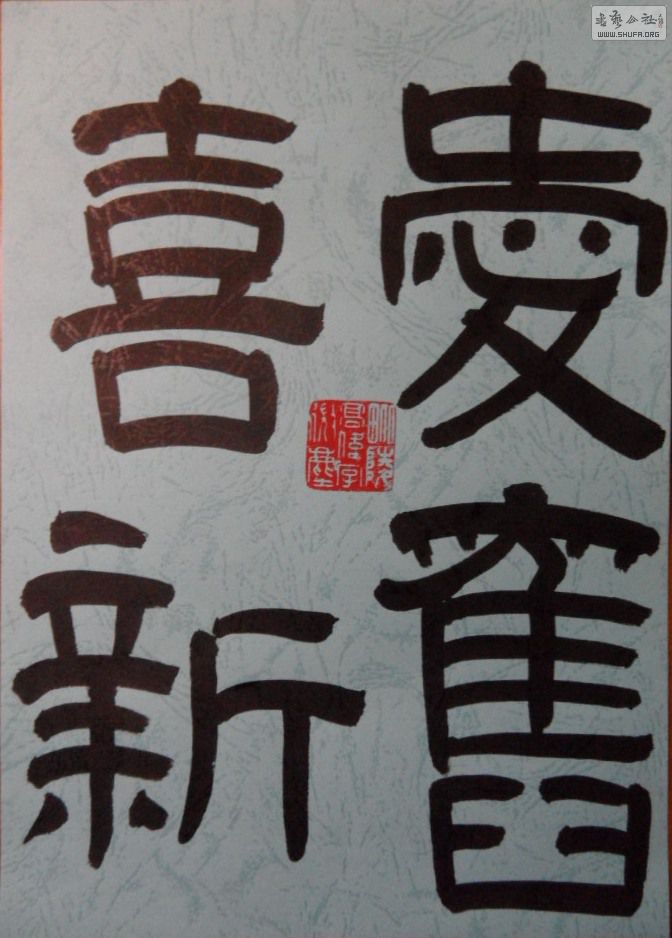 愛舊
喜新
書藝公社
WWW.SHUFA.ORG